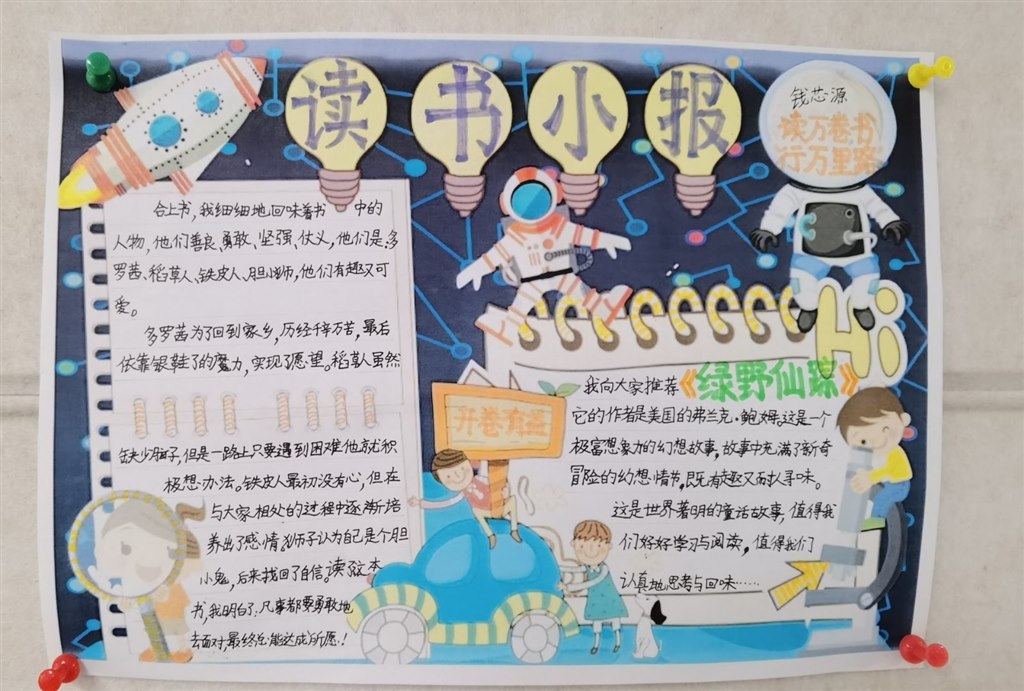 读书小报
钱芯源
读万卷书
行万里路
合上书，我细细地回味着书 中的
人物，他们善良、勇敢、坚强、仗义，他们是多
罗茜、稻草人、铁皮人、胆小狮，他们有趣又可
爱。
多罗茜为了回到家乡，历经千辛万苦，最后
依靠银鞋子的魔力，实现了愿望。稻草人虽然
缺少脑子，但是一路上只要遇到困难他就积
极想办法。铁皮人最初没有心，但在
与大家相处的过程中逐渐培
养出了感情。狮子认为自己是个胆
小鬼，后来找回了自信。读了这本
书，我明白了：凡事都要勇敢地
去面对，最终总能达成所愿！
开卷有益
Hi
我向大家推荐《绿野仙踪》
它的作者是美国的弗兰克·鲍姆。这是一个
极富想象力的幻想故事，故事中充满了新奇
冒险的幻想情节，既有趣又耐人寻味。
这是世界著明的童话故事，值得我
们好好学习与阅读，值得我们
认真地思考与回味……